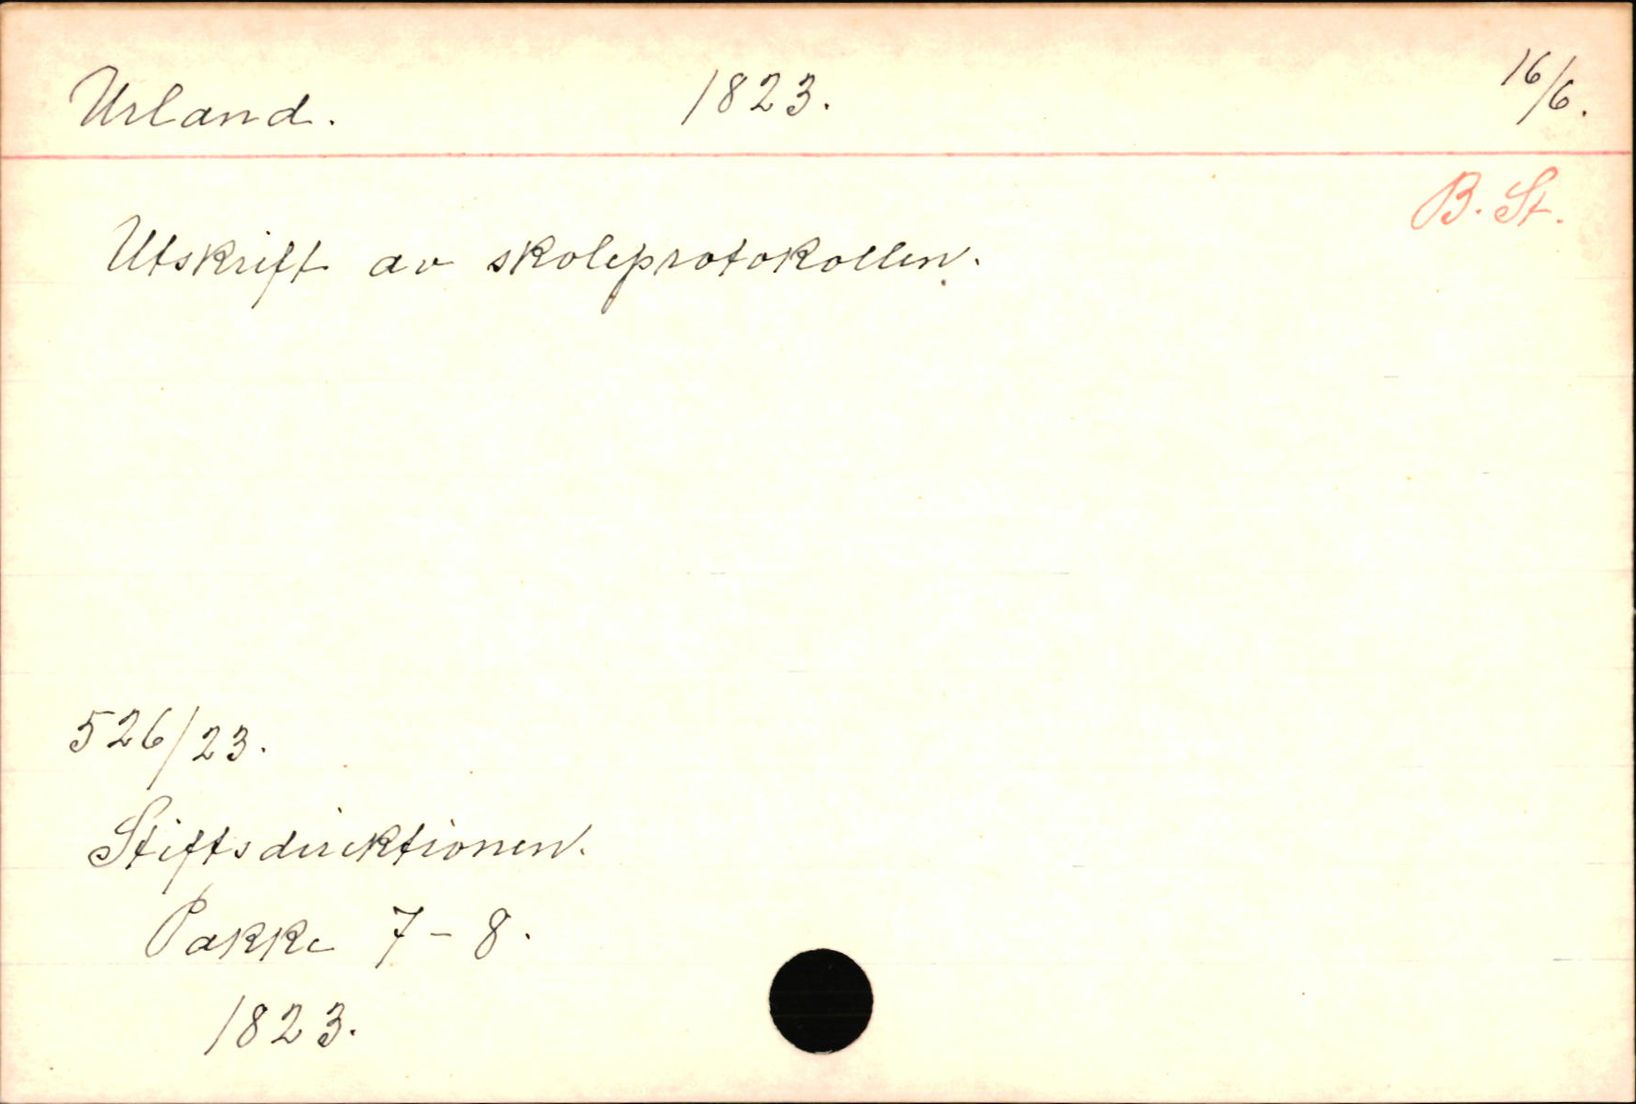 Urland. 1823. 16/6.
B. St.
Utskrift av skoleprotokollen.
526/23.
Stiftsdirektionen.
Pakke 7-8.
1823.